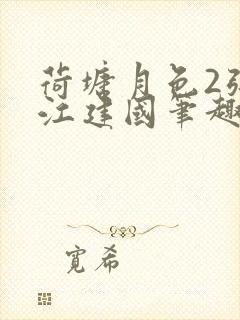 荷塘月色2张
江建國筆趣
寬希